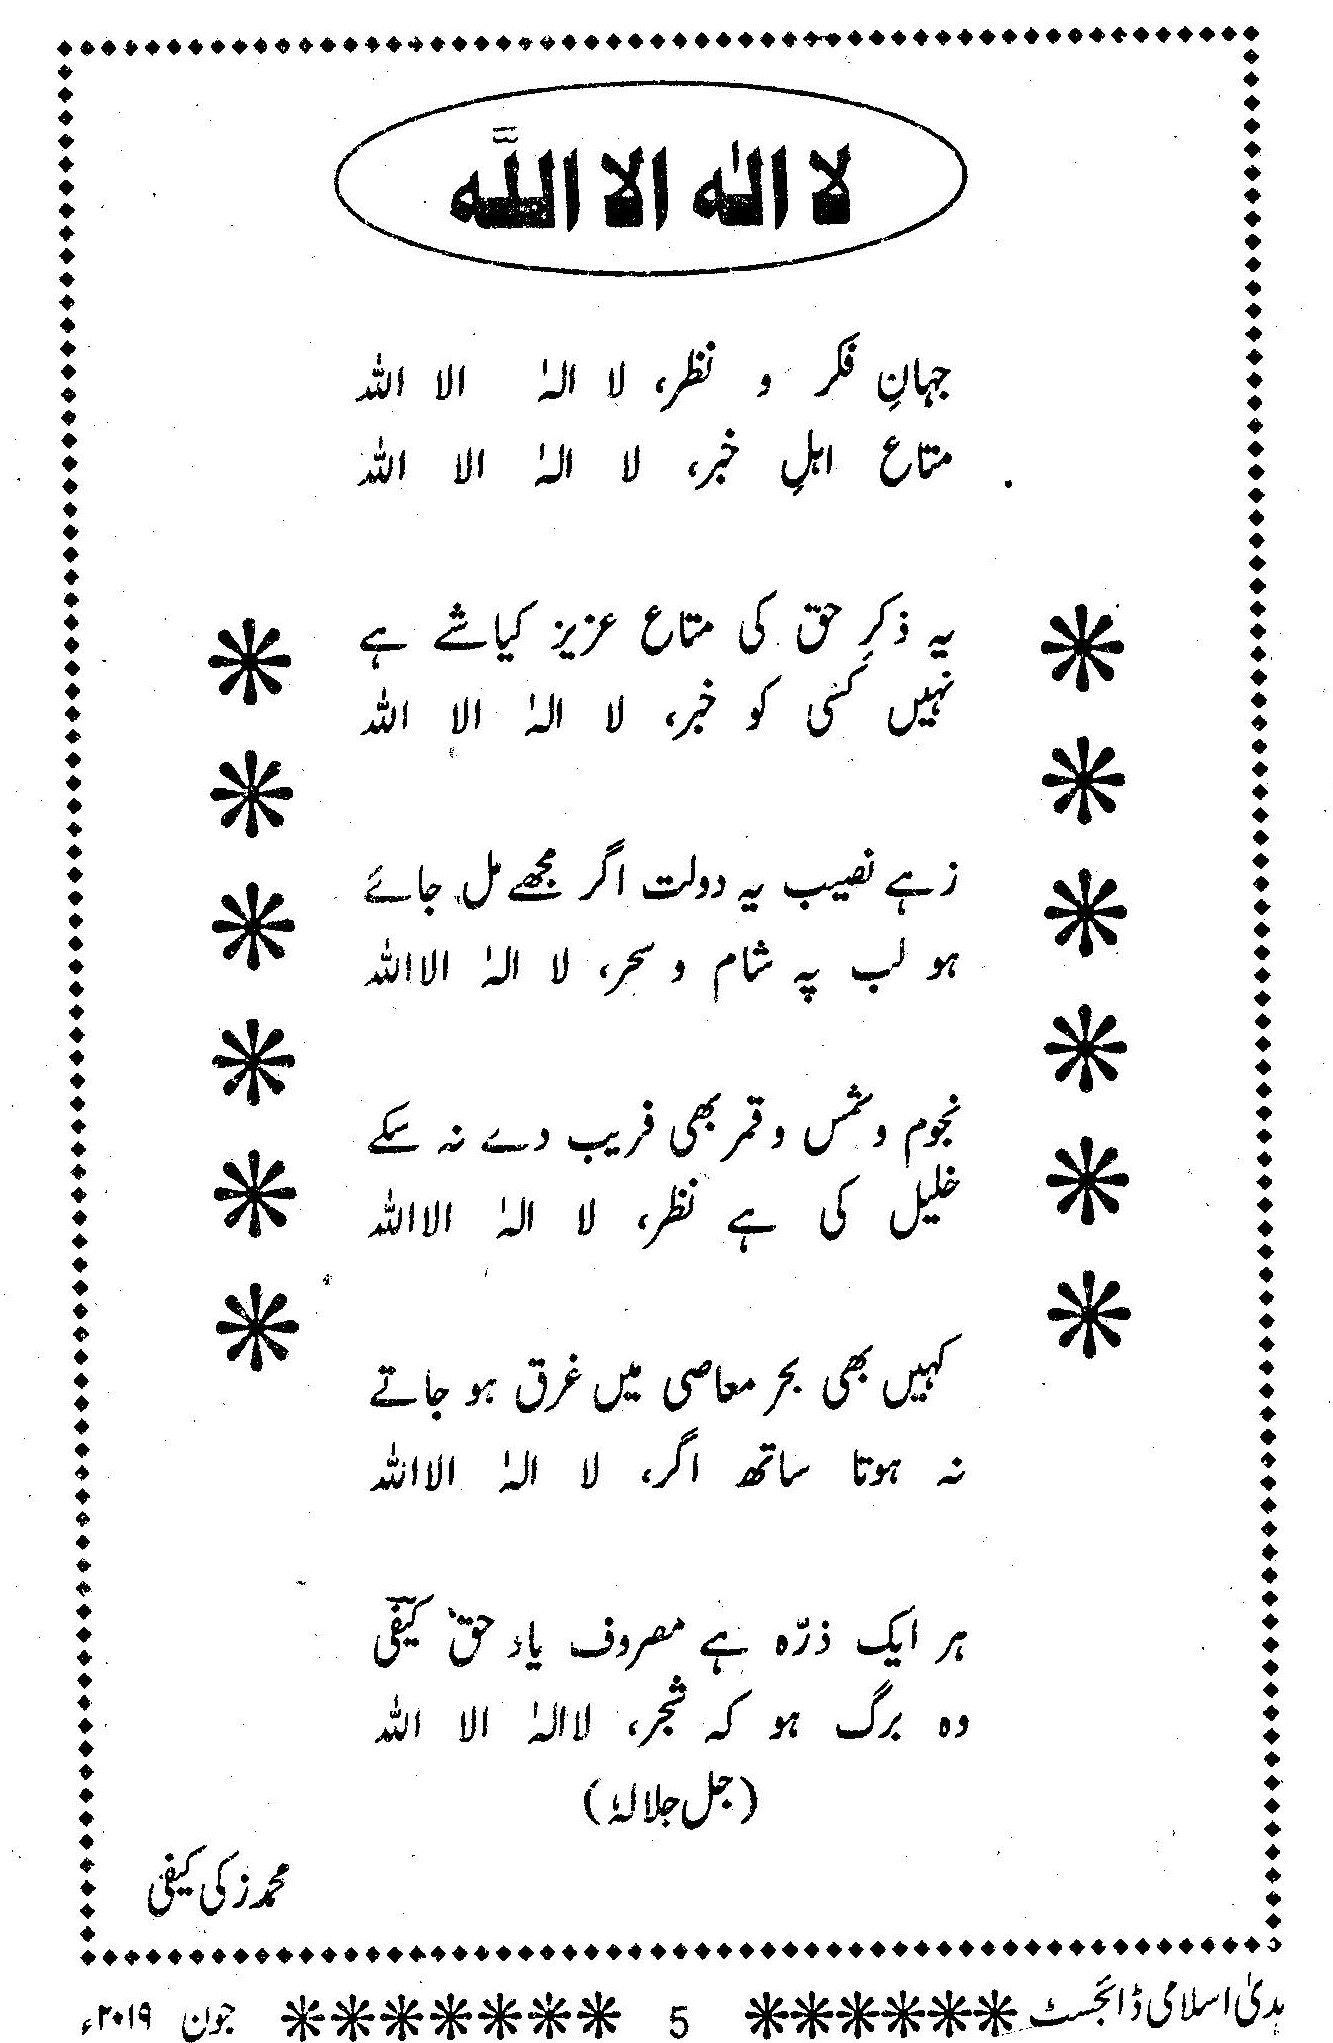 لا الٰہ الا اللّٰہ
جہانِ فکر و نظر، لا الہٰ الا اللہ
متاع اہلِ خبر، لا الہٰ الا اللہ
یہ ذکرِ حق کی متاع عزیز کیاشے ہے
نہیں کسی کو خبر، لا الہٰ الا اللہ
زہے نصیب یہ دولت اگر مجھے مل جائے
ہو لب پہ شام و سحر، لا الہٰ الااللہ
نجوم و شمس و قمر بھی فریب دے نہ سکے
خلیل کی ہے نظر، لا الہٰ الااللہ
کہیں بھی بحر معاصی میں غرق ہو جاتے
نہ ہوتا ساتھ اگر، لا الہٰ الااللہ
ہر ایک ذرّہ ہے مصروف یاد حق کیفؔی
وہ برگ ہو کہ شجر، لاالہٰ الا اللہ
(جل جلالہٗ)
محمد زکی کیفی
ہدیٰ اسلامی ڈائجسٹ 5 جون ۲۰۱۹ء